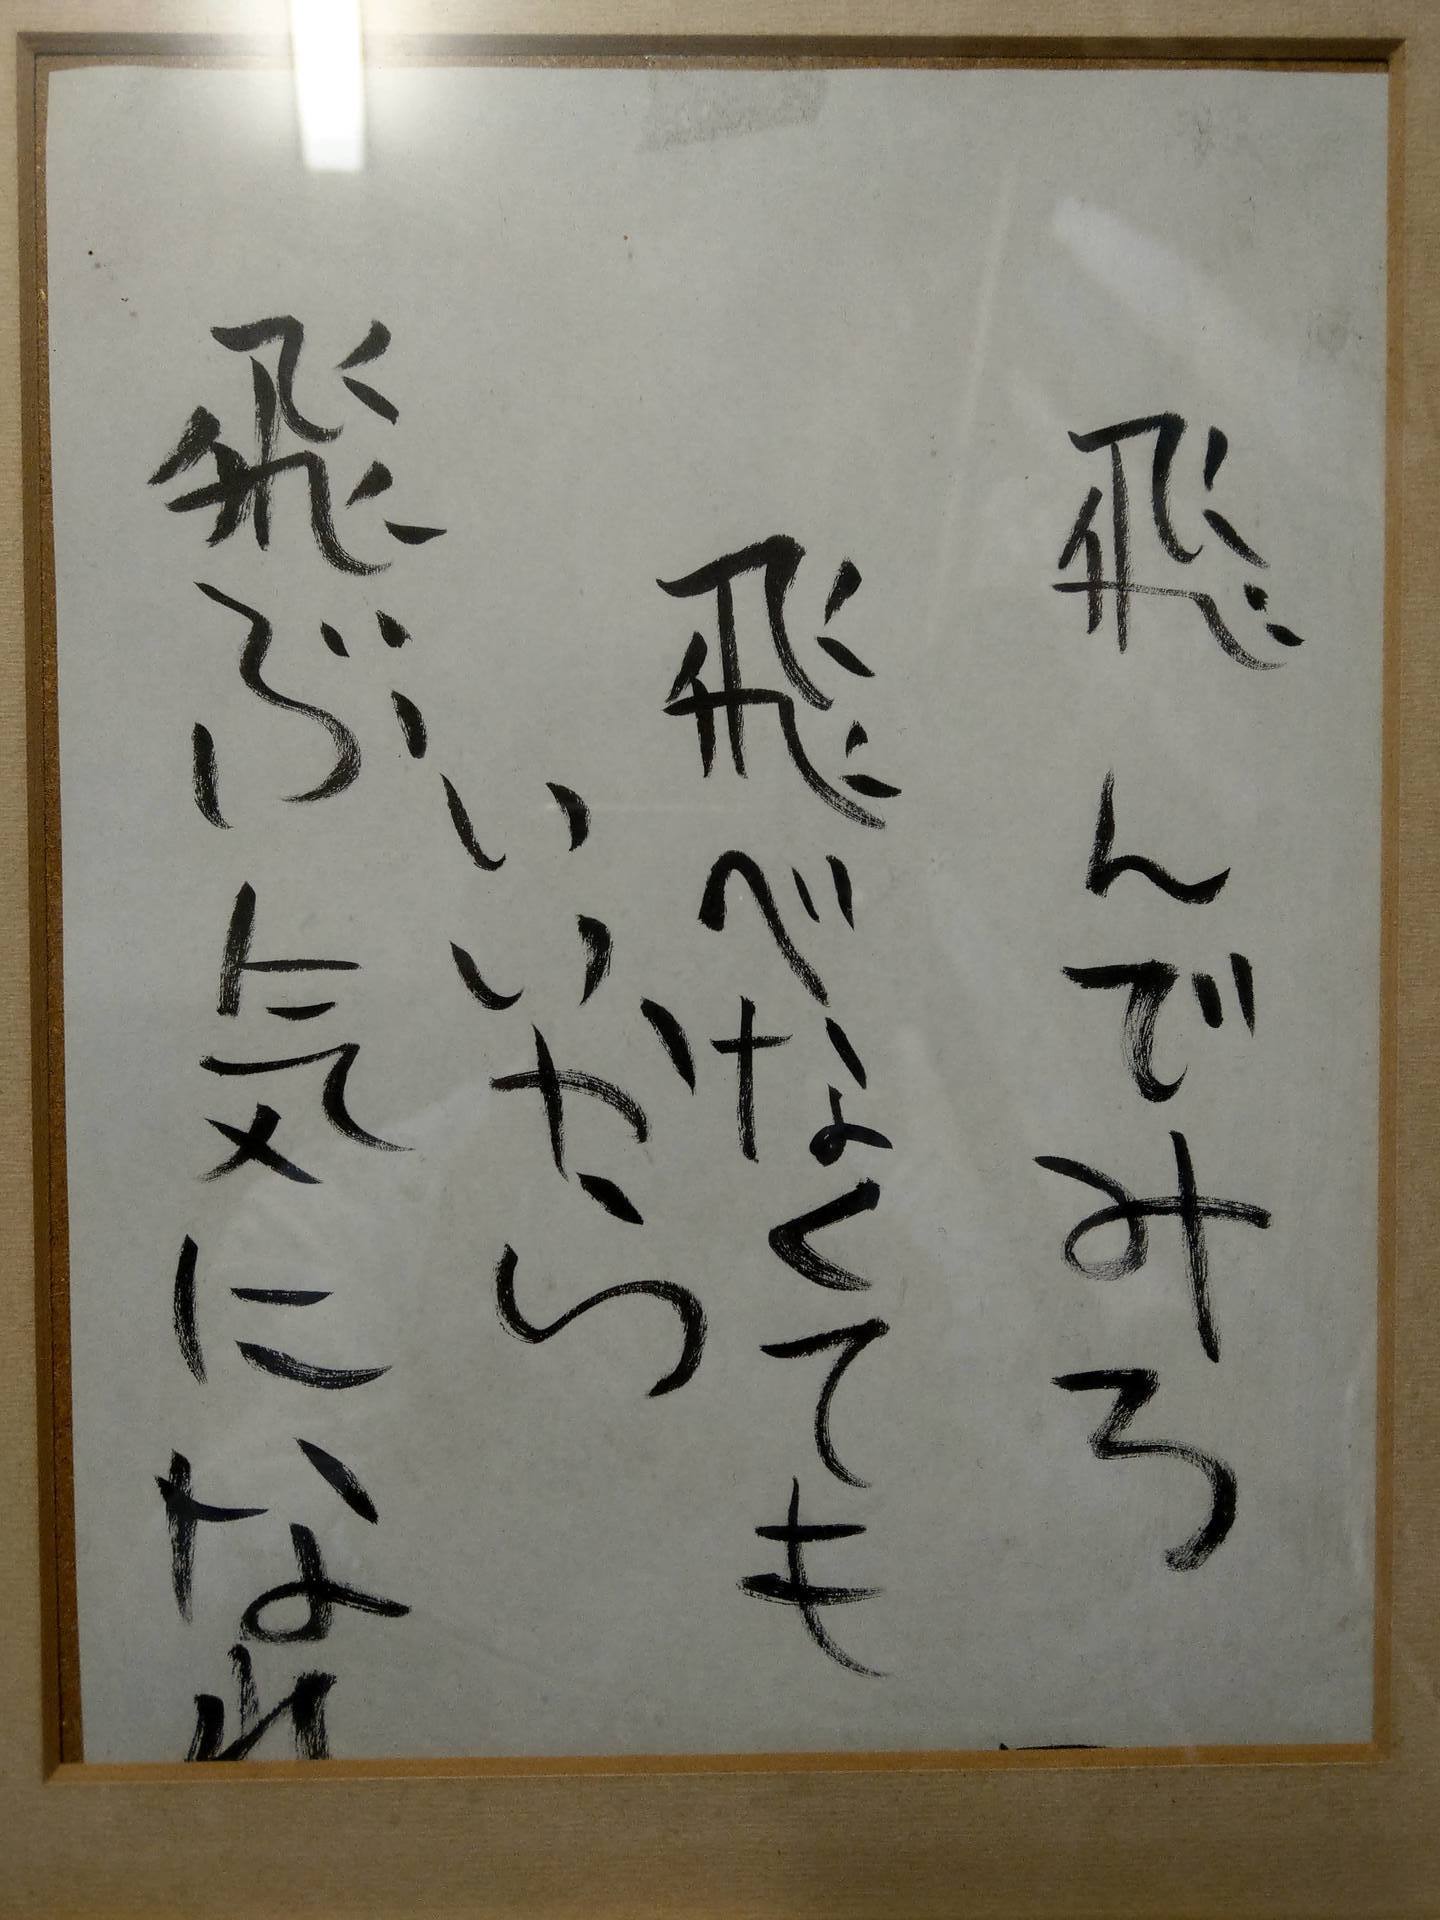 飛んでみろ
飛べなくても
いいから
飛ぶ気になれ